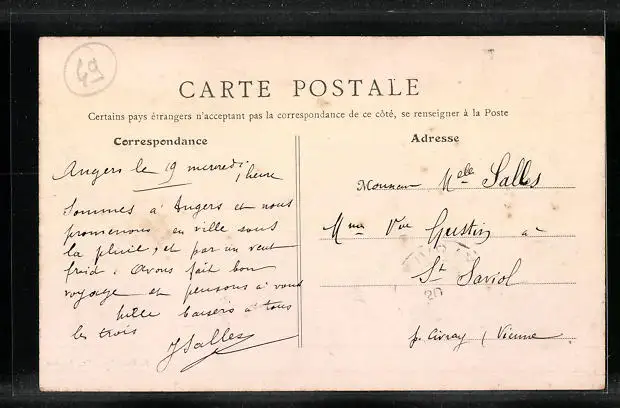 49
CARTE POSTALE
Certains pays étrangers n'acceptant pas la correspondance de ce côté, se renseigner à la Poste
Correspondance
Adresse
Angers le 19 mercredi, 1 heure
Sommes à Angers et nous
promenons en ville sous
la pluie, et par un vent
froid. Avons fait bon
voyage et pensons à vous
Mille baisers à tous
les trois
JSalles
Monsieur Melle Salles
Mme Vve Gustin à
St Saviol
pr Civray (Vienne
20